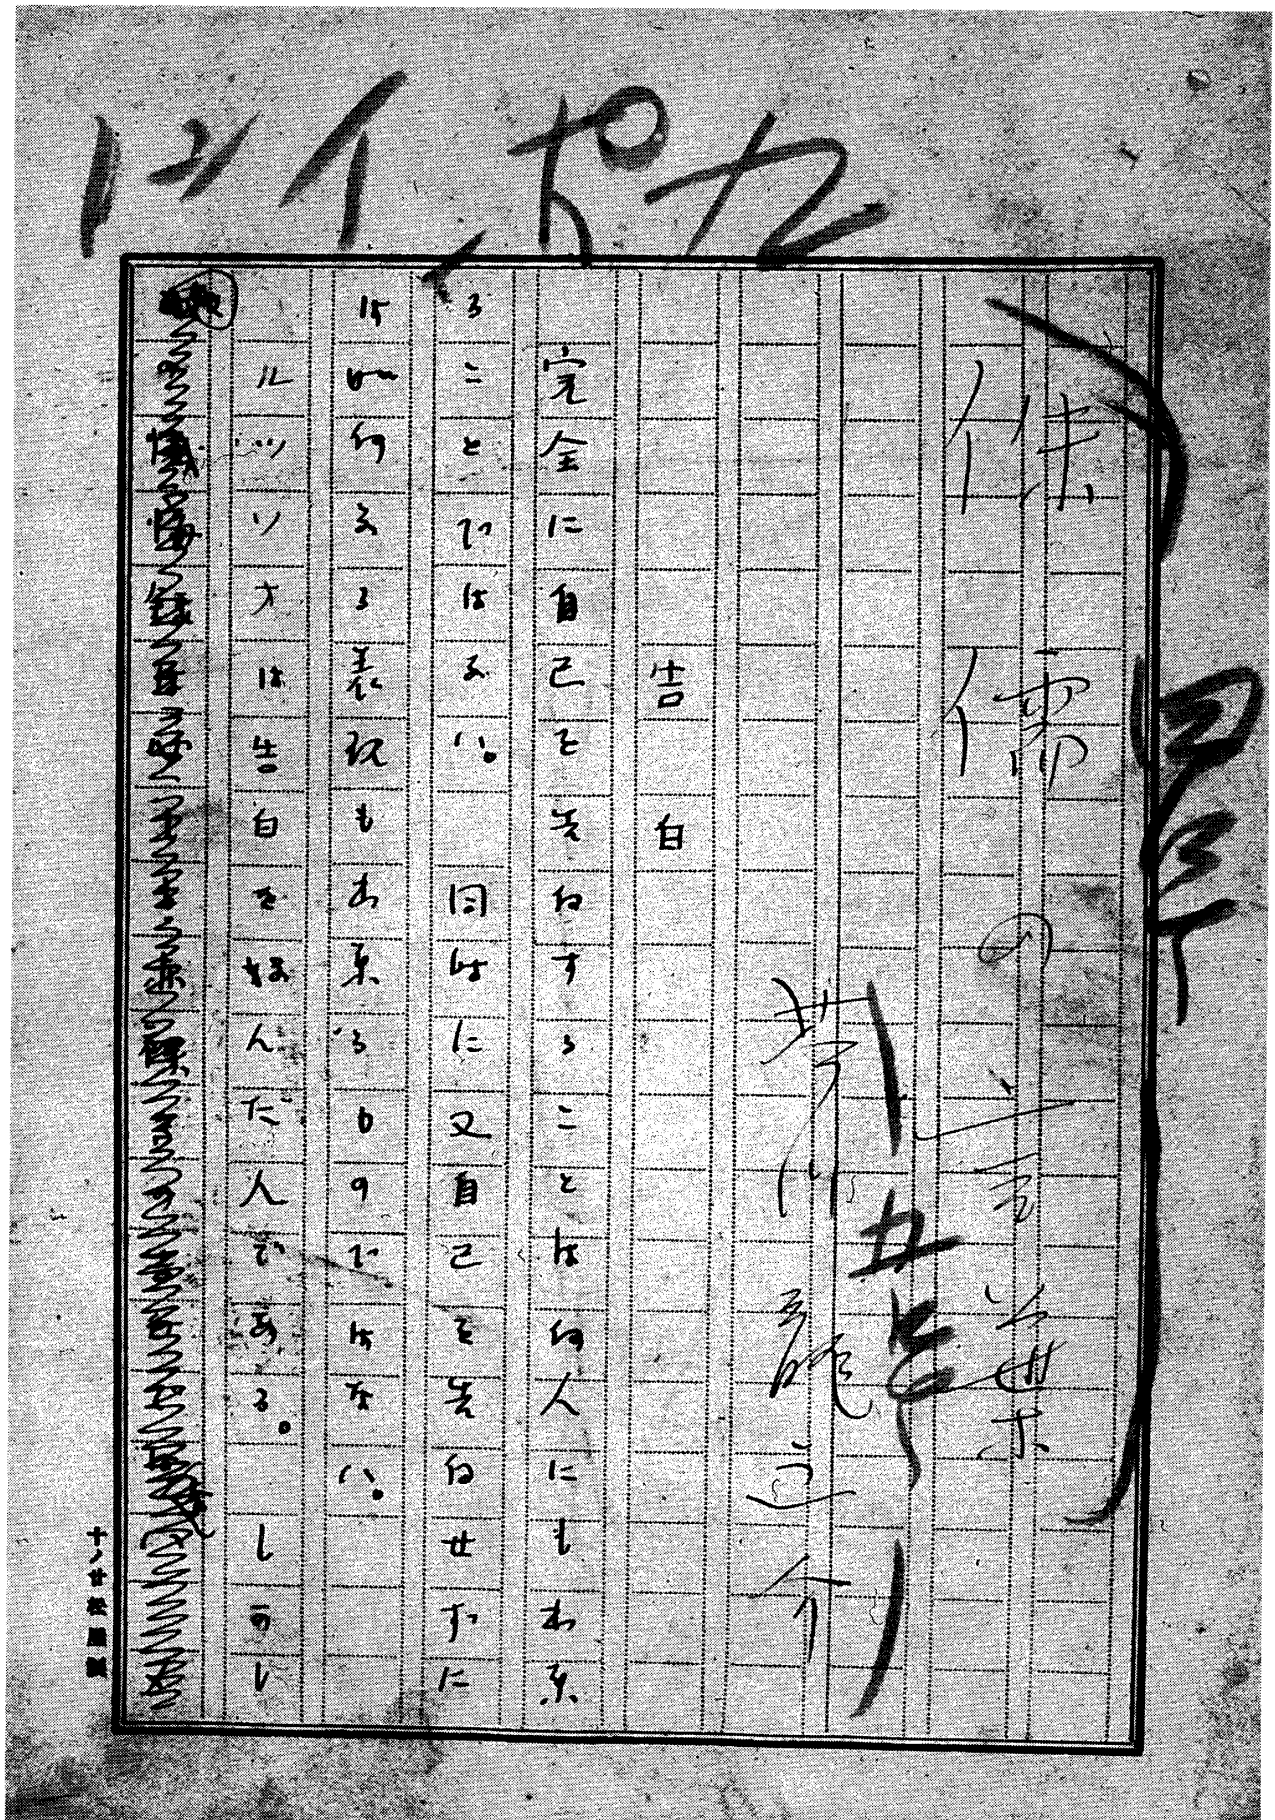 九ポイント
侏儒の言葉
五号
芥川龍之介
告白
完全に自己を告白することは何人にも出来
ることではない。 同時に又自己を告白せずに
は如何なる表現も出来るものではない。
ルツソオは告白を好んだ人である。 しかし
十ノ廿松屋製